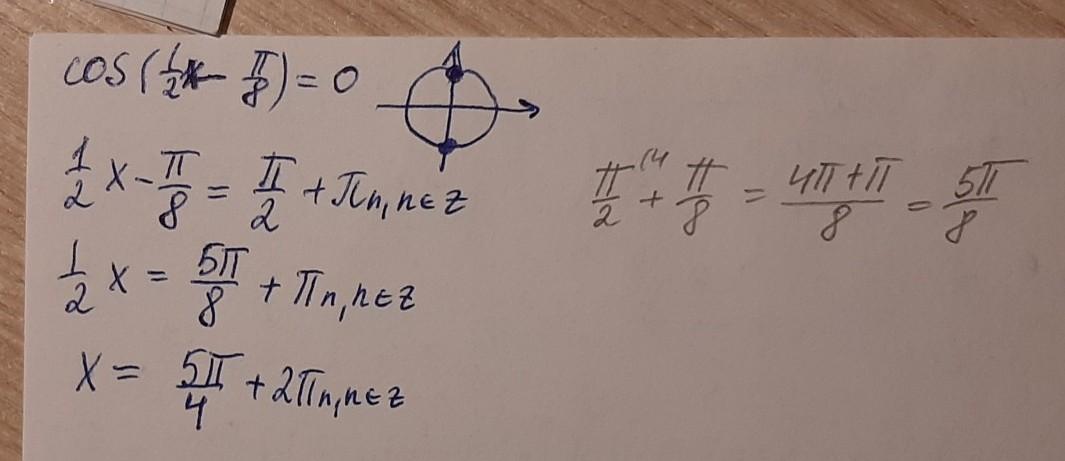 cos(1/2x - π/8) = 0
1/2 x - π/8 = π/2 + πn, n∈z
π/2 + π/8 = (4π+π)/8 = 5π/8
1/2 x = 5π/8 + πn, n∈z
x = 5π/4 + 2πn, n∈z